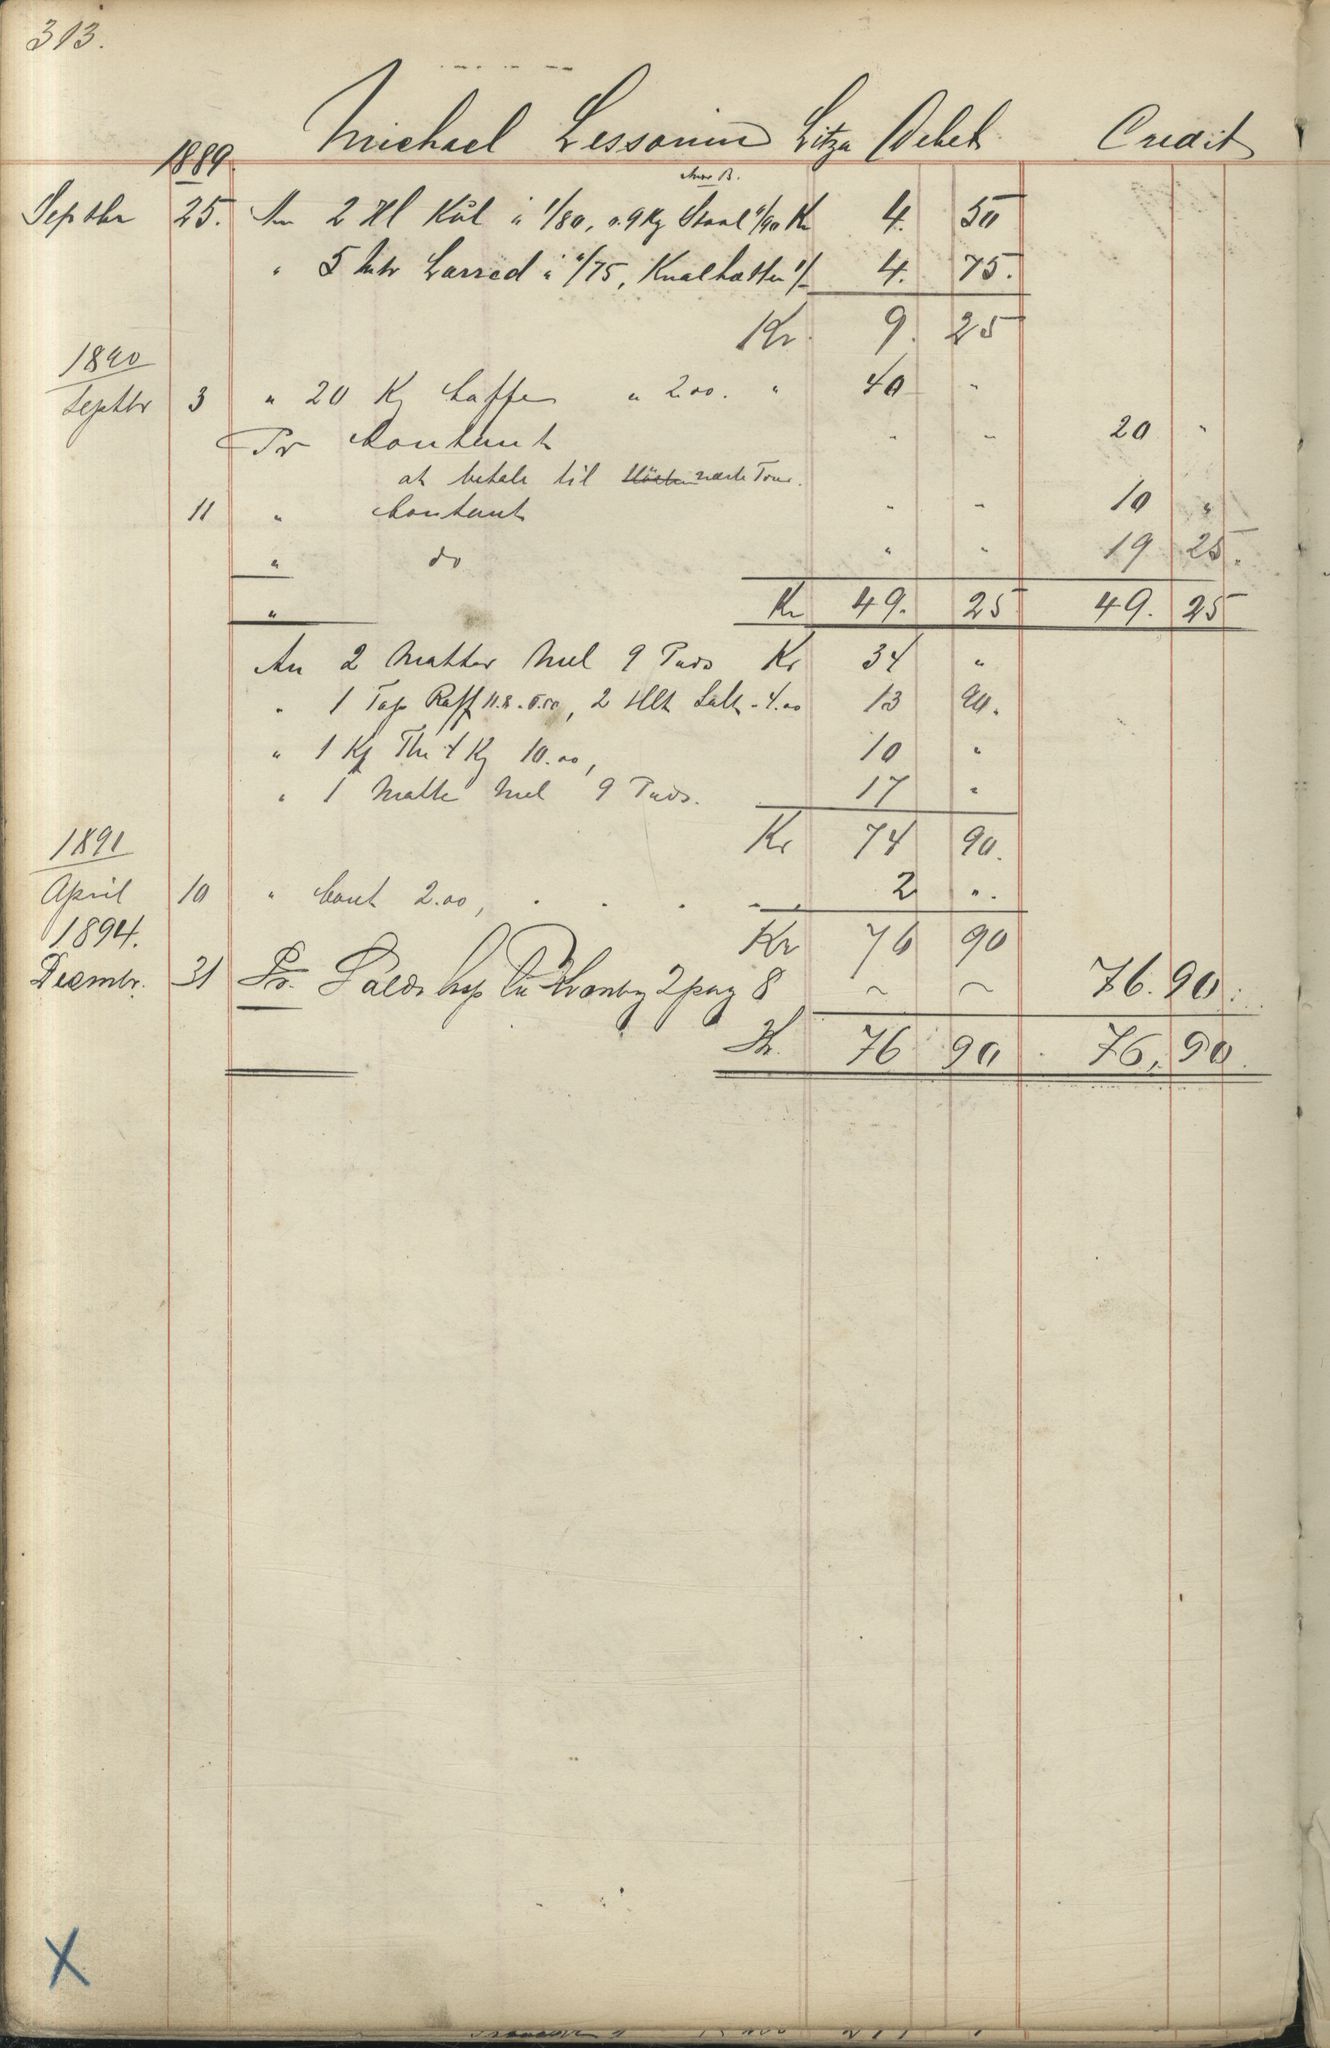 313.
Michael Lessonin Litza Debet Credit
1889.
Septbr 25. An 2 Hl Kül à 1/80, 0.9 Kg Staal 1/90 Kr 4. 50
" 5 Mtr Lærred à "/75, Knalhætter 1/- 4. 75.
Kr 9. 25
1890
Septbr 3 " 20 Kg Caffe " 2.00. " 40 "
Pr Contant " " 20 "
at betale til næste Tour.
11 " Contant " " 10 "
" do " " 19 25.
" Kr 49. 25 49. 25
An 2 Matter Mel 9 Puds Kr 34 "
" 1 Top Raff 11.8. , 2 Hlt Salt - 4.00 13 90.
" 1 Kg The 1 Kg 10.00, 10 "
" 1 Matte Mel 9 Puds. 17 "
Kr 74 90.
1891
April 10 " Cont 2.00, . . . . . 2 ".
Kr 76 90
1894.
Decembr. 31 Pr. Saldo 2 pag 8 ~ ~ 76.90.
Kr. 76 90 76,90.
X